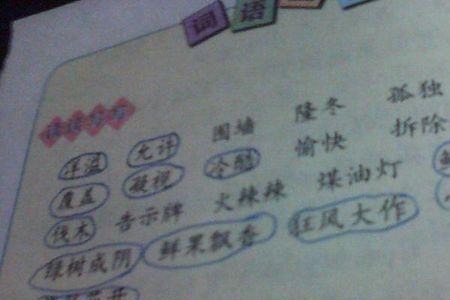 词语
读读写写
洋溢 允许 围墙 隆冬 孤独
覆盖 凝视 冷酷 愉快 拆除
伐木 告示牌 火辣辣 煤油灯
绿树成阴 鲜果飘香 狂风大作